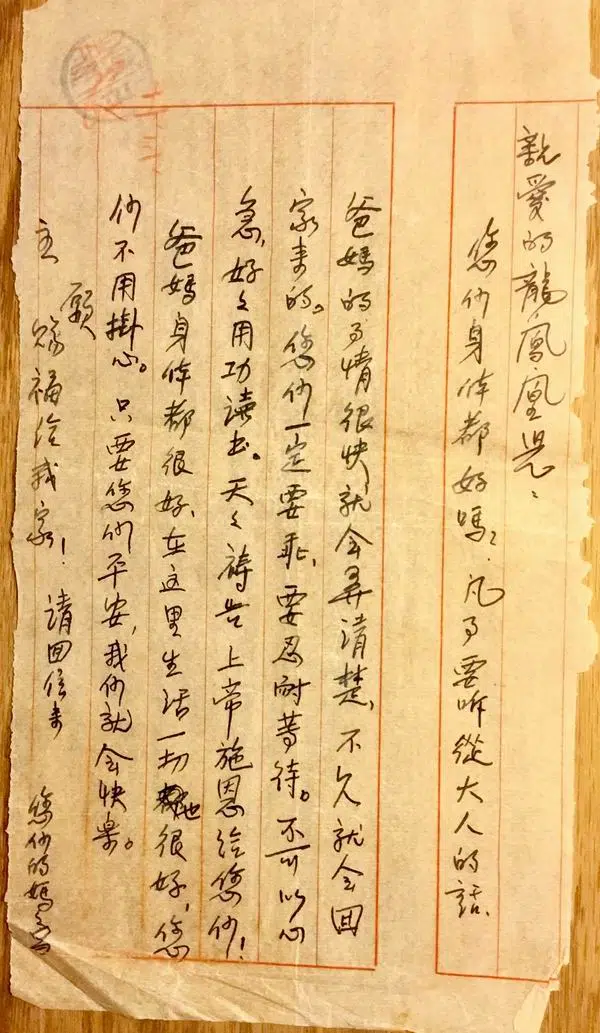 親愛的龍、鳳、凰児：
您们身体都好嗎？凡事要听從大人的話。
爸媽的事情很快就会弄清楚，不久就会回
家来的。您们一定要乖，要忍耐等待。不可以心
急，好々用功讀书。天々禱告上帝施恩给您们！
爸媽身体都很好，在这里生活一切也很好，您
们不用掛心。只要您们平安，我们就会快樂。
願
主賜福给我家！ 請回信来
您们的媽